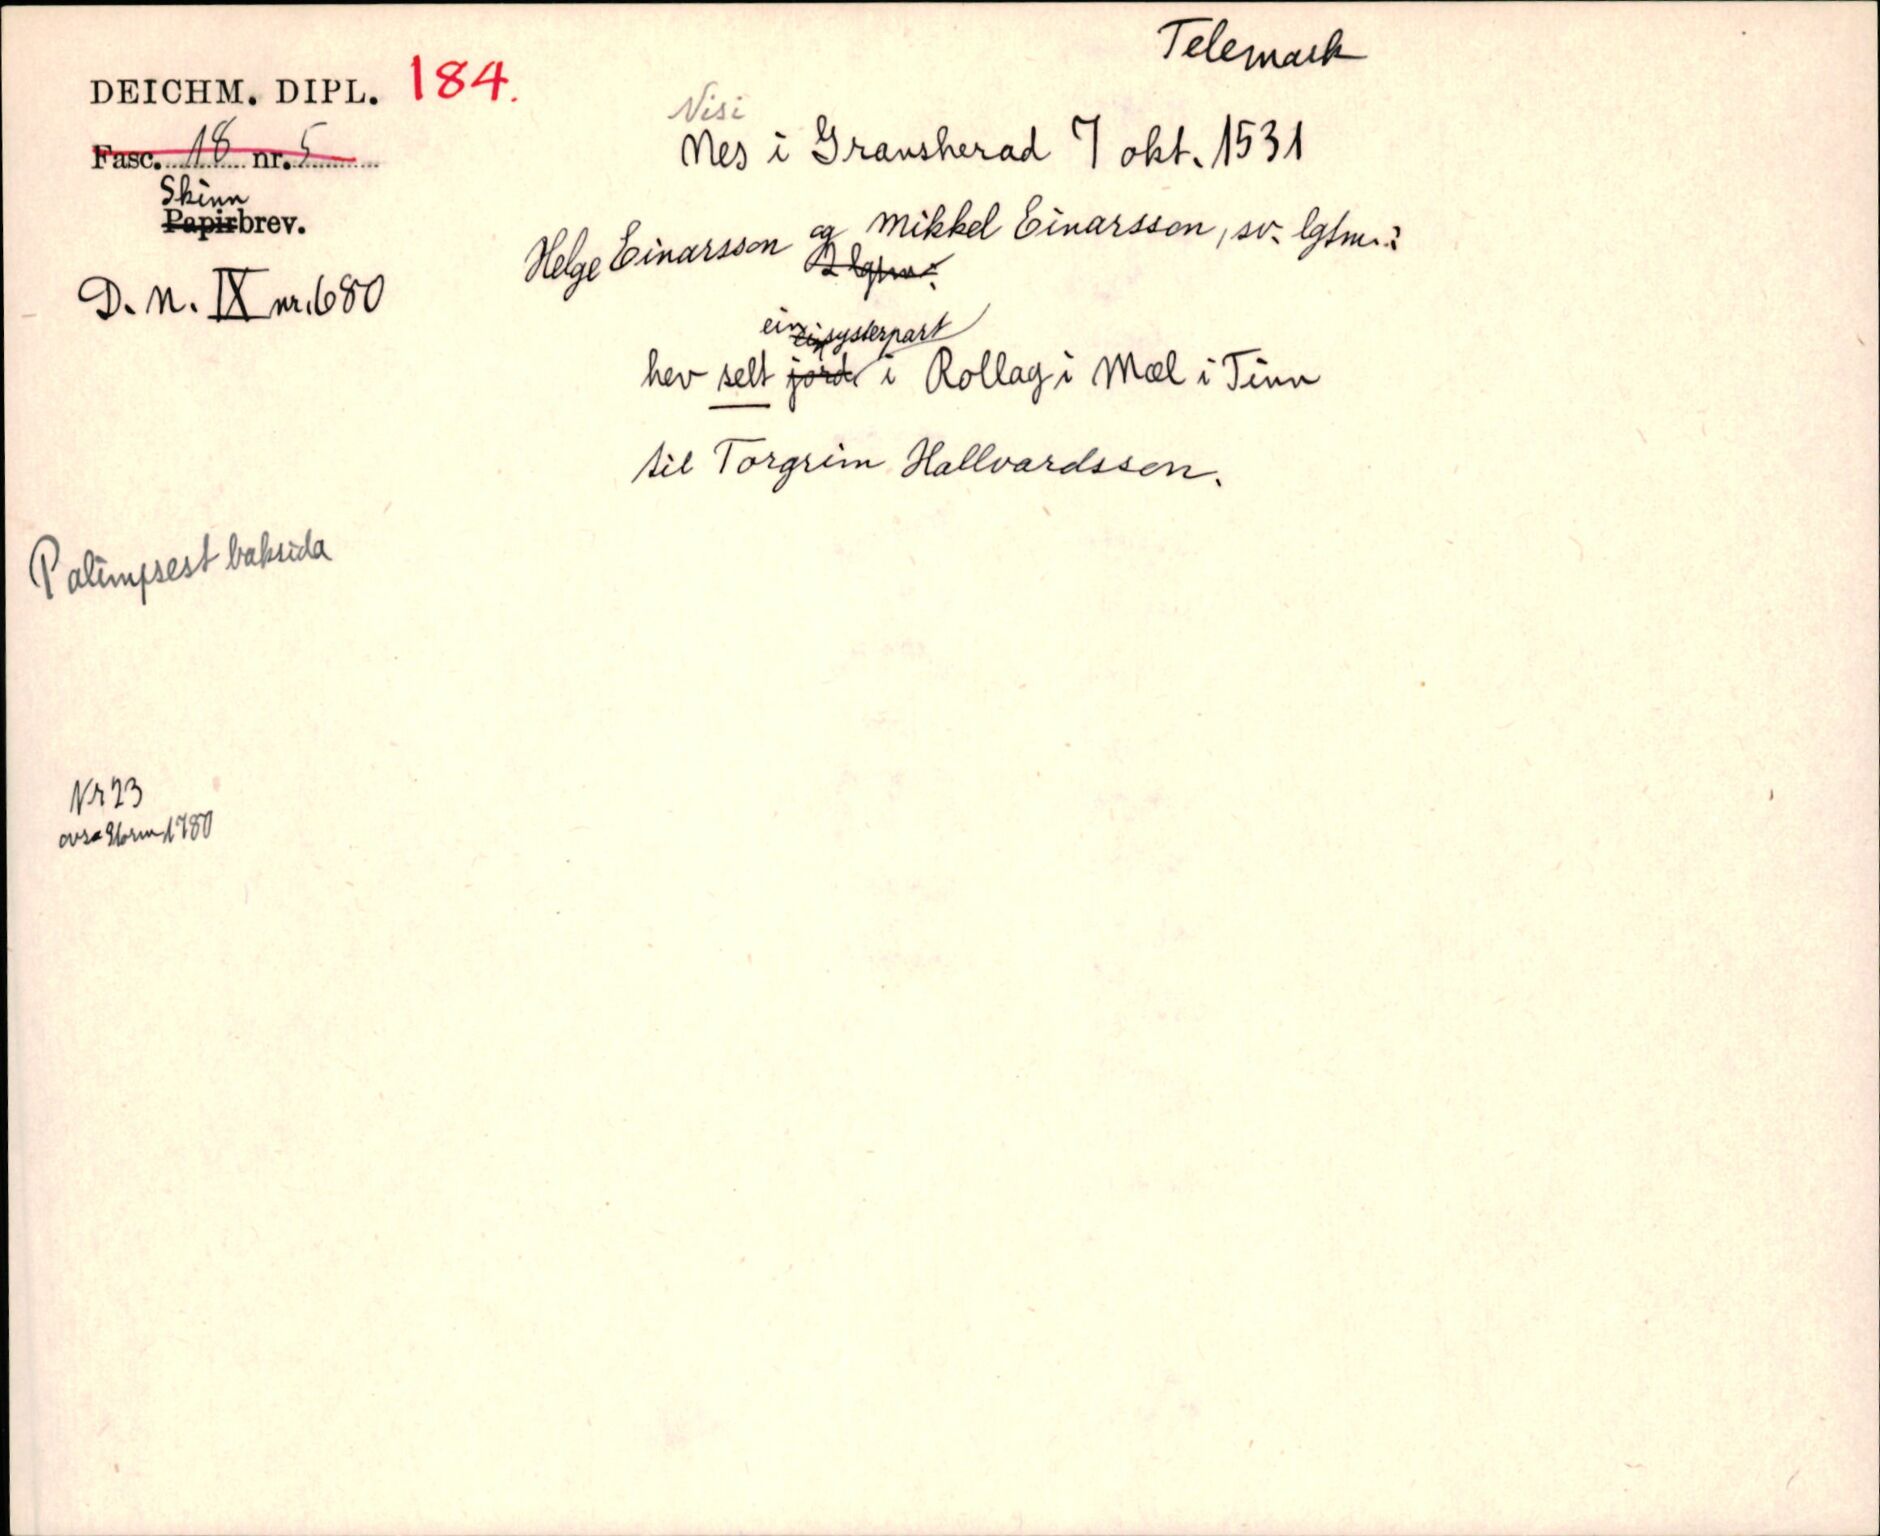 Telemark
DEICHM. DIPL. 184.
Fasc. 18 nr. 5
Skinn
Papirbrev.
D. N. IX nr. 680
Nisi
Nes i Gransherad 7 okt. 1531
Helge Einarsson og Mikkel Einarsson, sv. lgtm. i
2 lgtm. i
ein systerpart
hev selt jord i Rollag i Mæl i Tinn
til Torgrim Hallvardsson.
Palimpsest baksida
Nr 23
1780